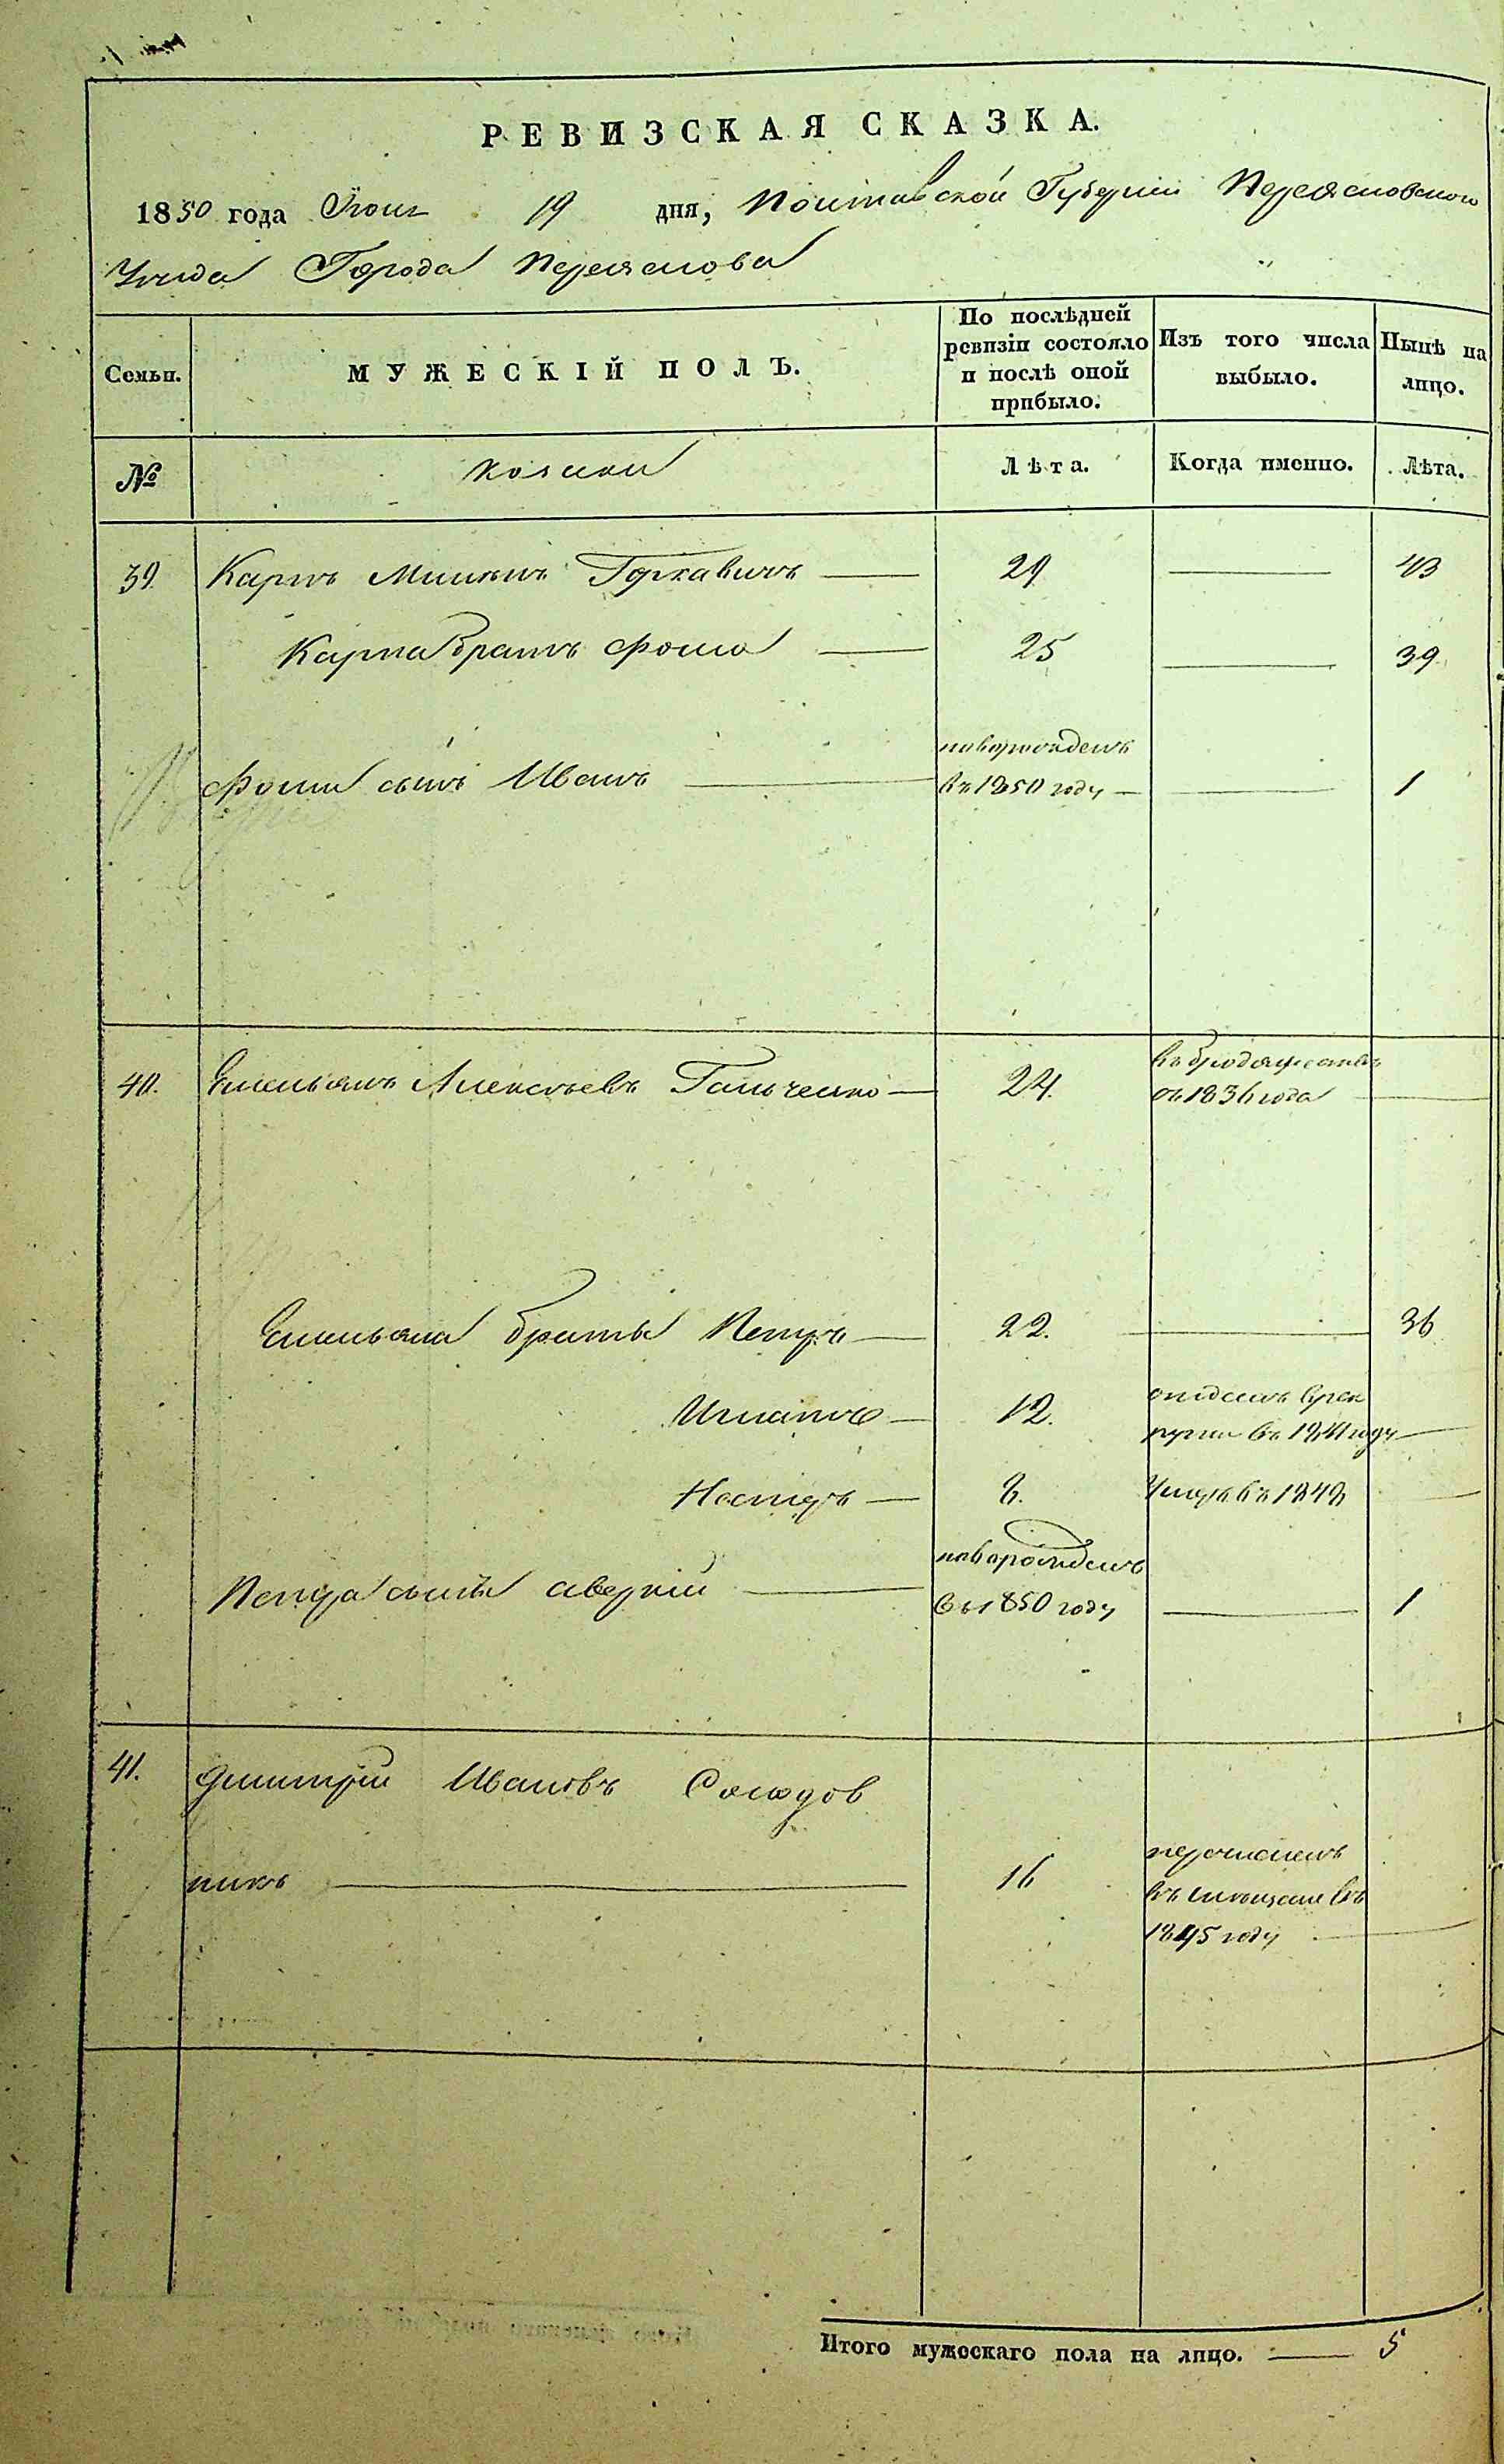 РЕВИЗСКАЯ СКАЗКА.
1850 года Июня 19 дня, Полтавской Губерніи Переясловского
Уезда Города Переяслова
Семьи. МУЖЕСКІЙ ПОЛЪ. По послѣдней ревизіи состояло и послѣ оной прибыло. Изъ того числа выбыло. Нынѣ на лицо.
№ Козаки Лѣта. Когда именно. Лѣта.
39. Карпъ 29 43
Карпа Братъ Фома 25 39
новорожденъ
Фомы сынъ Иванъ въ 1850 году 1
въ бродяжествѣ
40. Емельянъ Алексѣевъ Гальченко 24. съ 1836 года
Емельяна братья Петръ 22. 36
отданъ в рек
Игнатъ 12. руты въ 1841 году
Несторъ 8. Умеръ въ 1848
новорожденъ
Петра сынъ Аверкій въ 1850 году 1
41. Димитрій Ивановъ Солодов
никъ 16 перечисленъ
въ мещане въ
1845 году
Итого мужескаго пола на лицо. 5